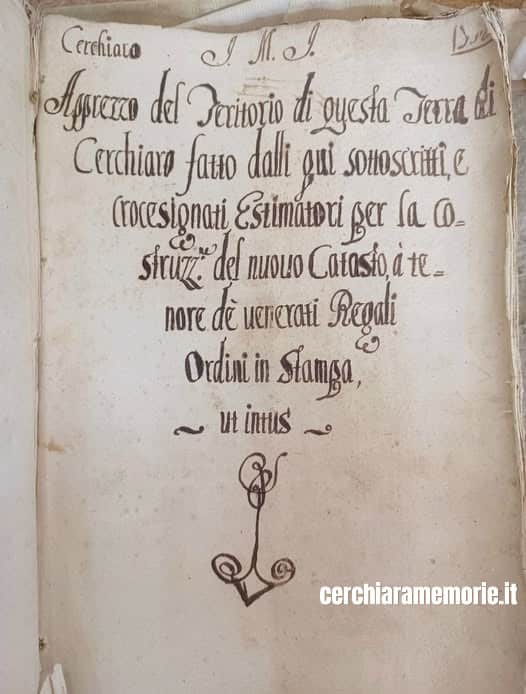 Cerchiaro J. M. J.
Apprezzo del Teritorio di questa Terra di
Cerchiaro fatto dalli qui sottoscritti, e
crocesignati Estimatori per la co=
struzz.ne del nuovo Catasto, à te=
nore dè venerati Regali
Ordini in Stampa,
~ ut intus ~
cerchiaramemorie.it